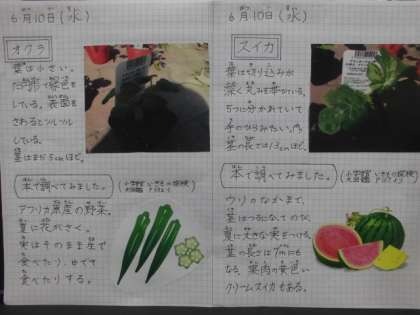 6月10日(水)
オクラ
葉は小さい。
だ円形で緑色を
している。表面を
さわるとツルツル
している。
茎はまだ5cmほど。
本で調べてみました。
アフリカ原産の野菜。
夏に花がさく。
実はそのまま生で
食べたり、ゆでて
食べたりする。
6月10日(水)
スイカ
葉は切り込みが
深く丸みを帯びている。
5つに分かれていて
手のひらみたい。
葉の長さは13cmほど。
本で調べてみました。
ウリのなかまで、
茎はつるになってのび、
夏に大きな実をつける。
茎の長さは7mにも
なる。果肉の黄色い
クリームスイカもある。